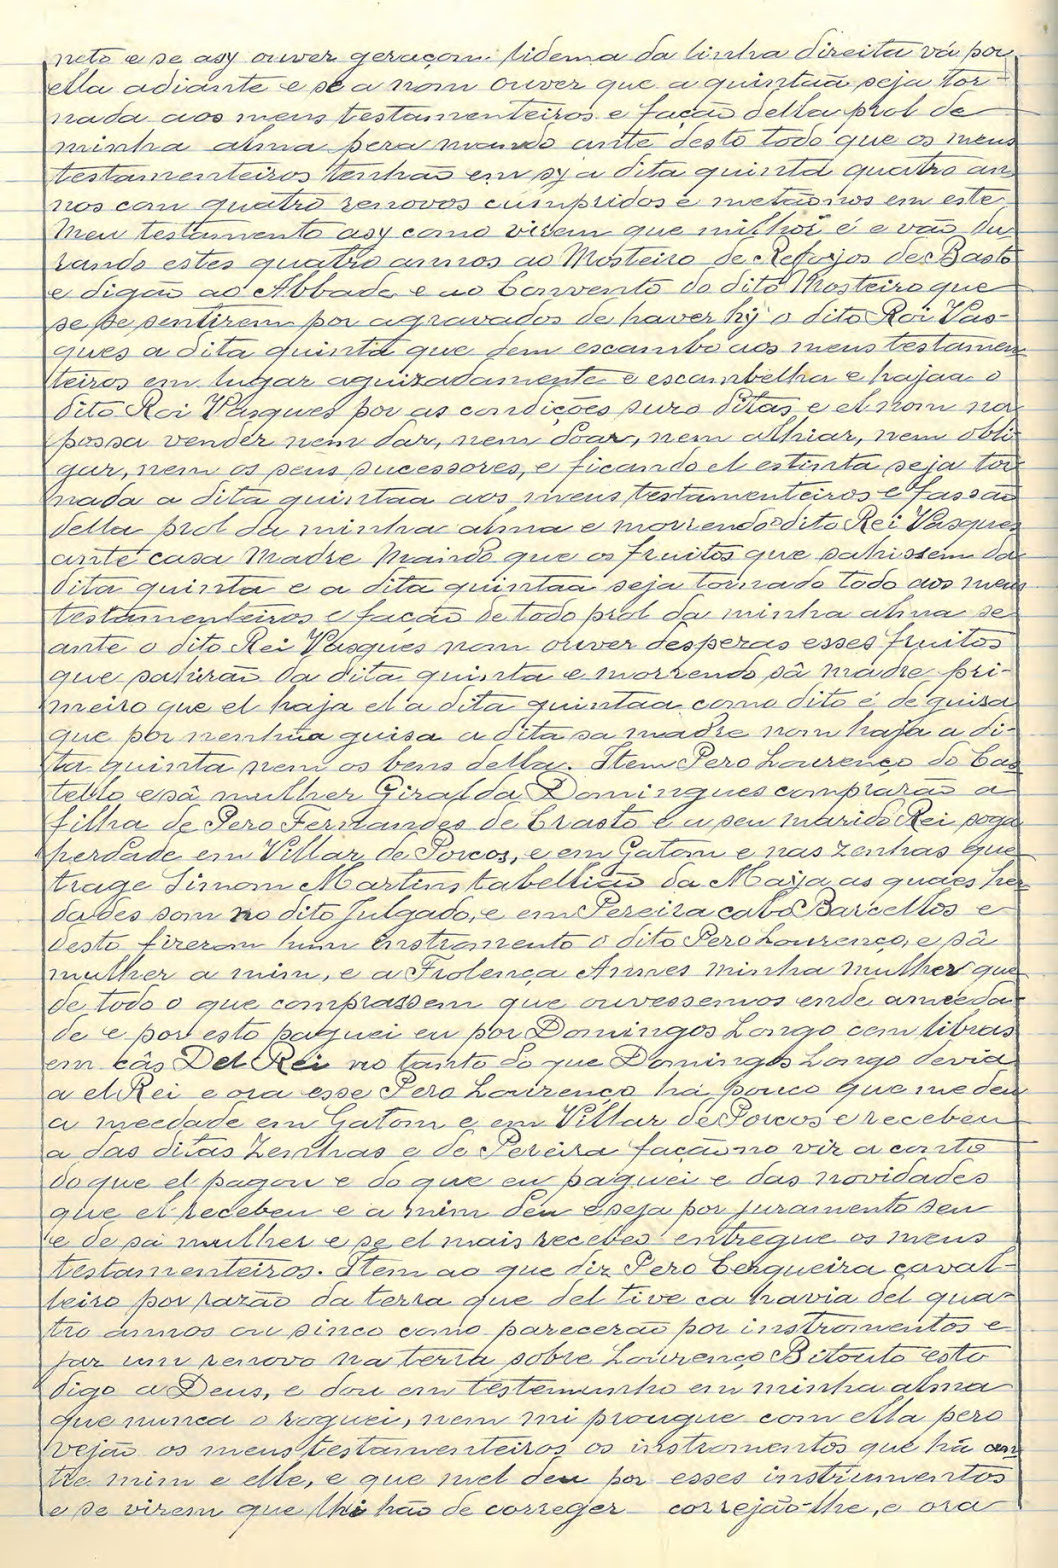 neto e se asy ouver geraçom lidema da linha direita vá por
ella adiante e se a nom ouver que a quintaã seja tor-
nada aos meus testamenteiros e fação della prol de
minha alma pera mando ante desto todo que os meus
testamenteiros tenhão em sy a dita quintã quatro an
nos com quatro renovos cumpridos e metãonos em este
Meu testamento asy como virem que milhor é e vão du
rando estes quatro annos ao Mosteiro de Refojos de Basto
e digão ao Abbade e ao Convento do dito Mosteiro que
se se sentirem por agravados de haver hy o dito Roi Vas-
ques a dita quintã que dem escambo aos meus testamen
teiros em lugar aguizadamente e escambelha e hajaa o
dito Roi Vasques por as condições suro ditas e el nom na
possa vender nem dar, nem doar, nem alhiar, nem obli
gar, nem os seus sucessores, e ficando el estinta seja tor
nada a dita quintaa aos meus testamenteiros e fassão
della prol da minha alma e morrendo o dito Rei Vasques
ante casa Madre Mando que os fruitos que sahissem da
dita quinta e a dita quintaa seja tornado todo aos meus
testamenteiros e fação de todo prol da minha alma se
ante o dito Rei Vasques nom ouver desperas esses fruitos
que sahirão da dita quinta e morrendo sâ madre pri-
meiro que el haja el a dita quintaa como dito é de guisa
que por nenhua guisa a dita sa madre nom haja a di-
ta quinta nem os bens della. Item Pero Lourenço do Cas
tello e sâ mulher Giralda Domingues comprarão a
filha de Pero Fernandes de Crasto e a seu marido Rei soga
herdade em Villar de Porcos, e em Gatom e nas Zenhas que
trage Simom Martins tabellião da Maija as quaes her-
dades som no dito Julgado, e em Pereira cabo Barcellos e
desto fizerom hum instromento o dito Pero Lourenço, e sâ
mulher a mim, e a Frolença Annes minha mulher que
de todo o que comprassem que ouvessemos ende ameeda-
de e por esto paguei eu por Domingos Longo cem libras
em câs Del Rei no tanto do que Domingos Longo devia
a el Rei e ora esse Pero Lourenço há pouco que me deu
a meedade em Gatom e em Villar de Porcos e recebeu
a das ditas Zenhas e de Pereira fação no vir a conto
do que el pagou e do que eu paguei e das novidades
que el recebeu e a mim deu e seja por juramento seu
e de sa mulher e se el mais recebeo entregue os meus
testamenteiros. Item ao que diz Pero Cerqueira caval-
leiro por razão da terra que del tive ca havia del qua-
tro annos ou sinco como parecerão por instromentos e
far um renovo na terra sobre Lourenço Bitouto esto
digo a Deus, e dou em testemunho em minha alma
que nunca o roguei, nem mi prougue com ella pero
vejão os meus testamenteiros os instromentos que há an
tre mim e elle, e que mel deu por esses instrumentos
e se virem que lhi hão de correger correjão-lhe, e ora